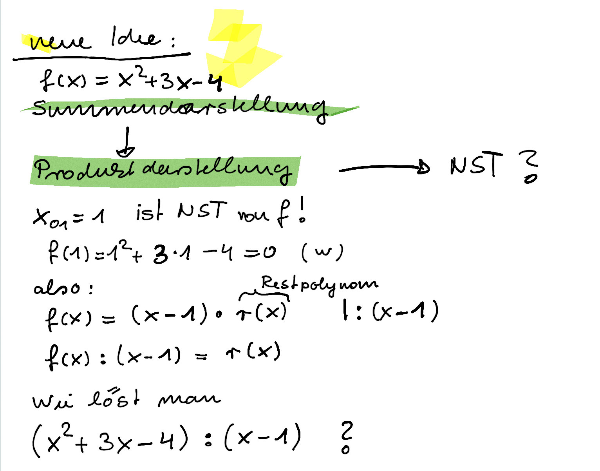 neue Idee:
f(x) = x²+3x-4
Summendarstellung
↓
Produktdarstellung → NST ?
x₀₁ = 1 ist NST von f!
f(1) = 1² + 3·1 - 4 = 0 (w)
also: Restpolynom
f(x) = (x-1) · r(x) |:(x-1)
f(x) : (x-1) = r(x)
Wie löst man
(x² + 3x - 4) : (x-1) ?